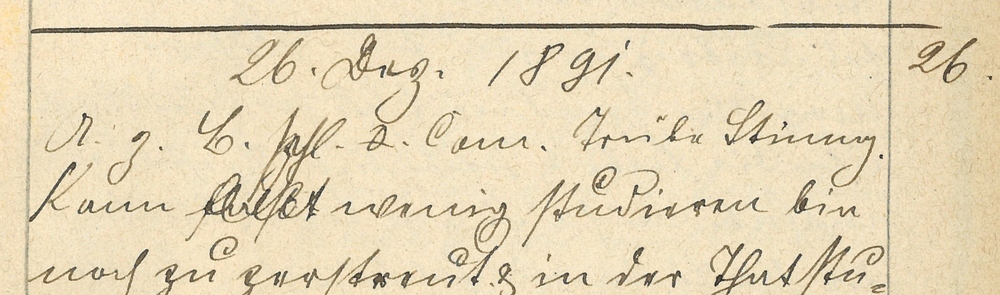 26. Dez. 1891. 26.
A. z. B. schl. d. Com. Trübe Stimmg.
Kann selbst wenig studieren bin
noch zu zerstreut. & in der That stu=